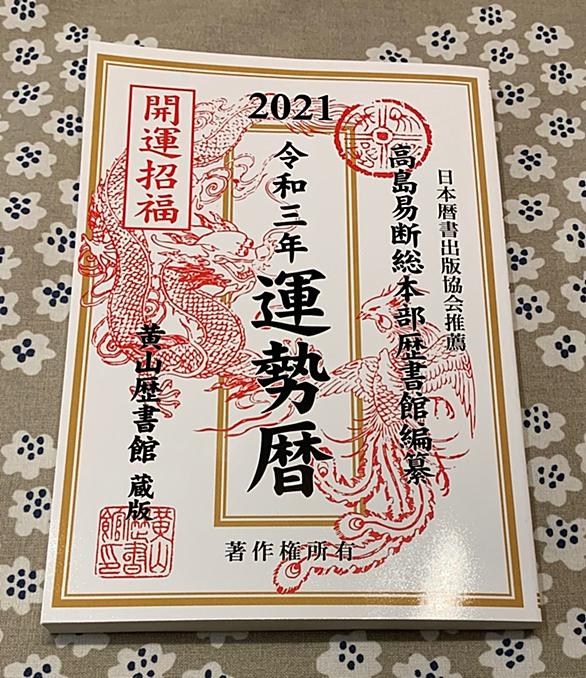 2021
日本暦書出版協会推薦
高島易断総本部歴書館編纂
令和三年 運勢暦
開運招福
黄山歴書館 蔵版
著作権所有
黄山
歴書
館印